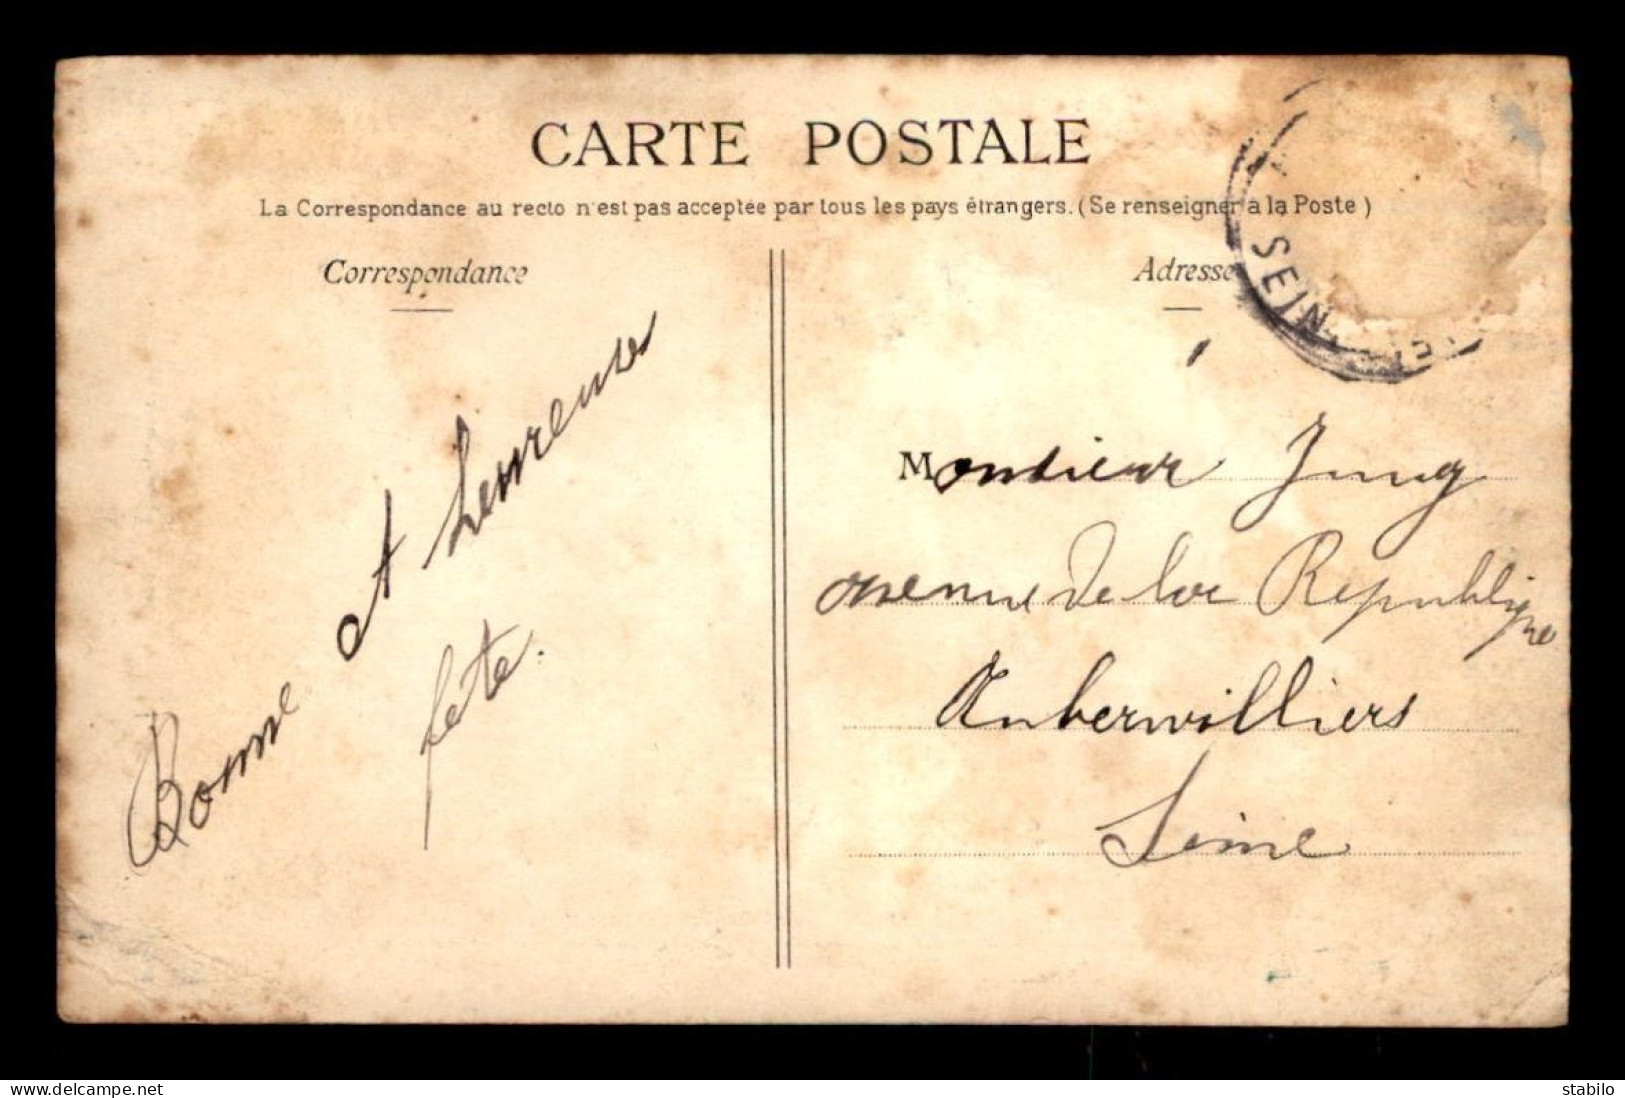 CARTE POSTALE
La Correspondance au recto n'est pas acceptée par tous les pays étrangers. (Se renseigner à la Poste)
Correspondance
Bonne et heureuse
fete.
Adresse
SEINE
Monsieur Jung
avenue de la Republique
Aubervilliers
Seine
delcampe.net
stabilo